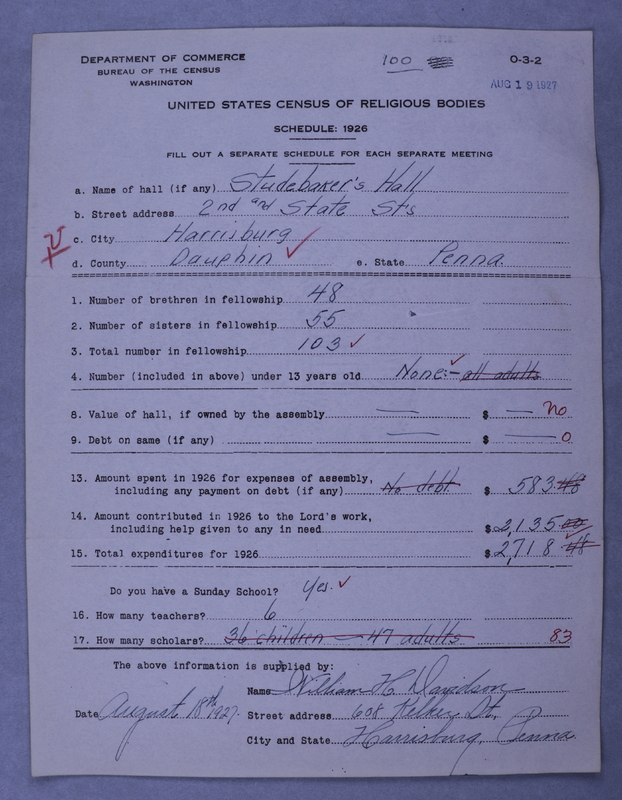 DEPARTMENT OF COMMERCE
BUREAU OF THE CENSUS
WASHINGTON
100
O-3-2
AUG 19 1927
UNITED STATES CENSUS OF RELIGIOUS BODIES
SCHEDULE: 1926
FILL OUT A SEPARATE SCHEDULE FOR EACH SEPARATE MEETING
a. Name of hall (if any) Studebaker's Hall
b. Street address 2nd and State Sts
c. City Harrisburg
d. County Dauphin e. State Penna.
1. Number of brethren in fellowship 48
2. Number of sisters in fellowship 55
3. Total number in fellowship 103
4. Number (included in above) under 13 years old None:- all adults
8. Value of hall, if owned by the assembly $ no
9. Debt on same (if any) $ 0
13. Amount spent in 1926 for expenses of assembly,
including any payment on debt (if any) No debt $ 583 48
14. Amount contributed in 1926 to the Lord's work,
including help given to any in need $ 2,135 00
15. Total expenditures for 1926 $ 2,718 48
Do you have a Sunday School? Yes.
16. How many teachers? 6
17. How many scholars? 36 children — 47 adults 83
The above information is supplied by:
Name William H. Davidson
Date August 18th 1927. Street address 608 Kelker St.
City and State Harrisburg, Penna.